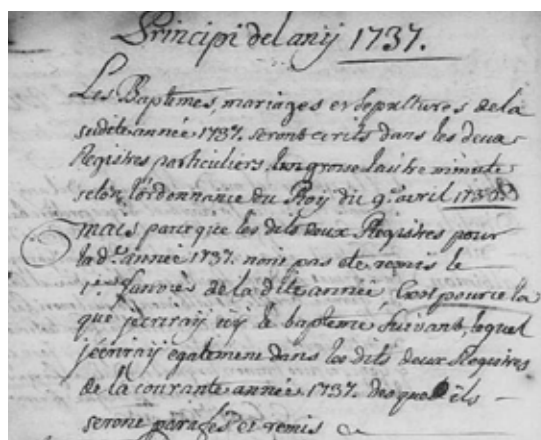 Principi del anij 1737.
Les Baptemes, mariages et sepultures de la
sudite année 1737. seront ecrits dans les deux
Registres particuliers lun grosse lautre minute
selon l'ordonnance du Roy du 9e. avril 1736
mais parce que les dits deux Registres pour
la de. année 1737. nont pas ete remis le
1er Janvier de la dite année, C'est pource la
que j'ecriraij icy le bapteme suivant, lequel
j'ecriraij egalement dans les dits deux Registres
de la courante année 1737. des quils
seront parafés et remis